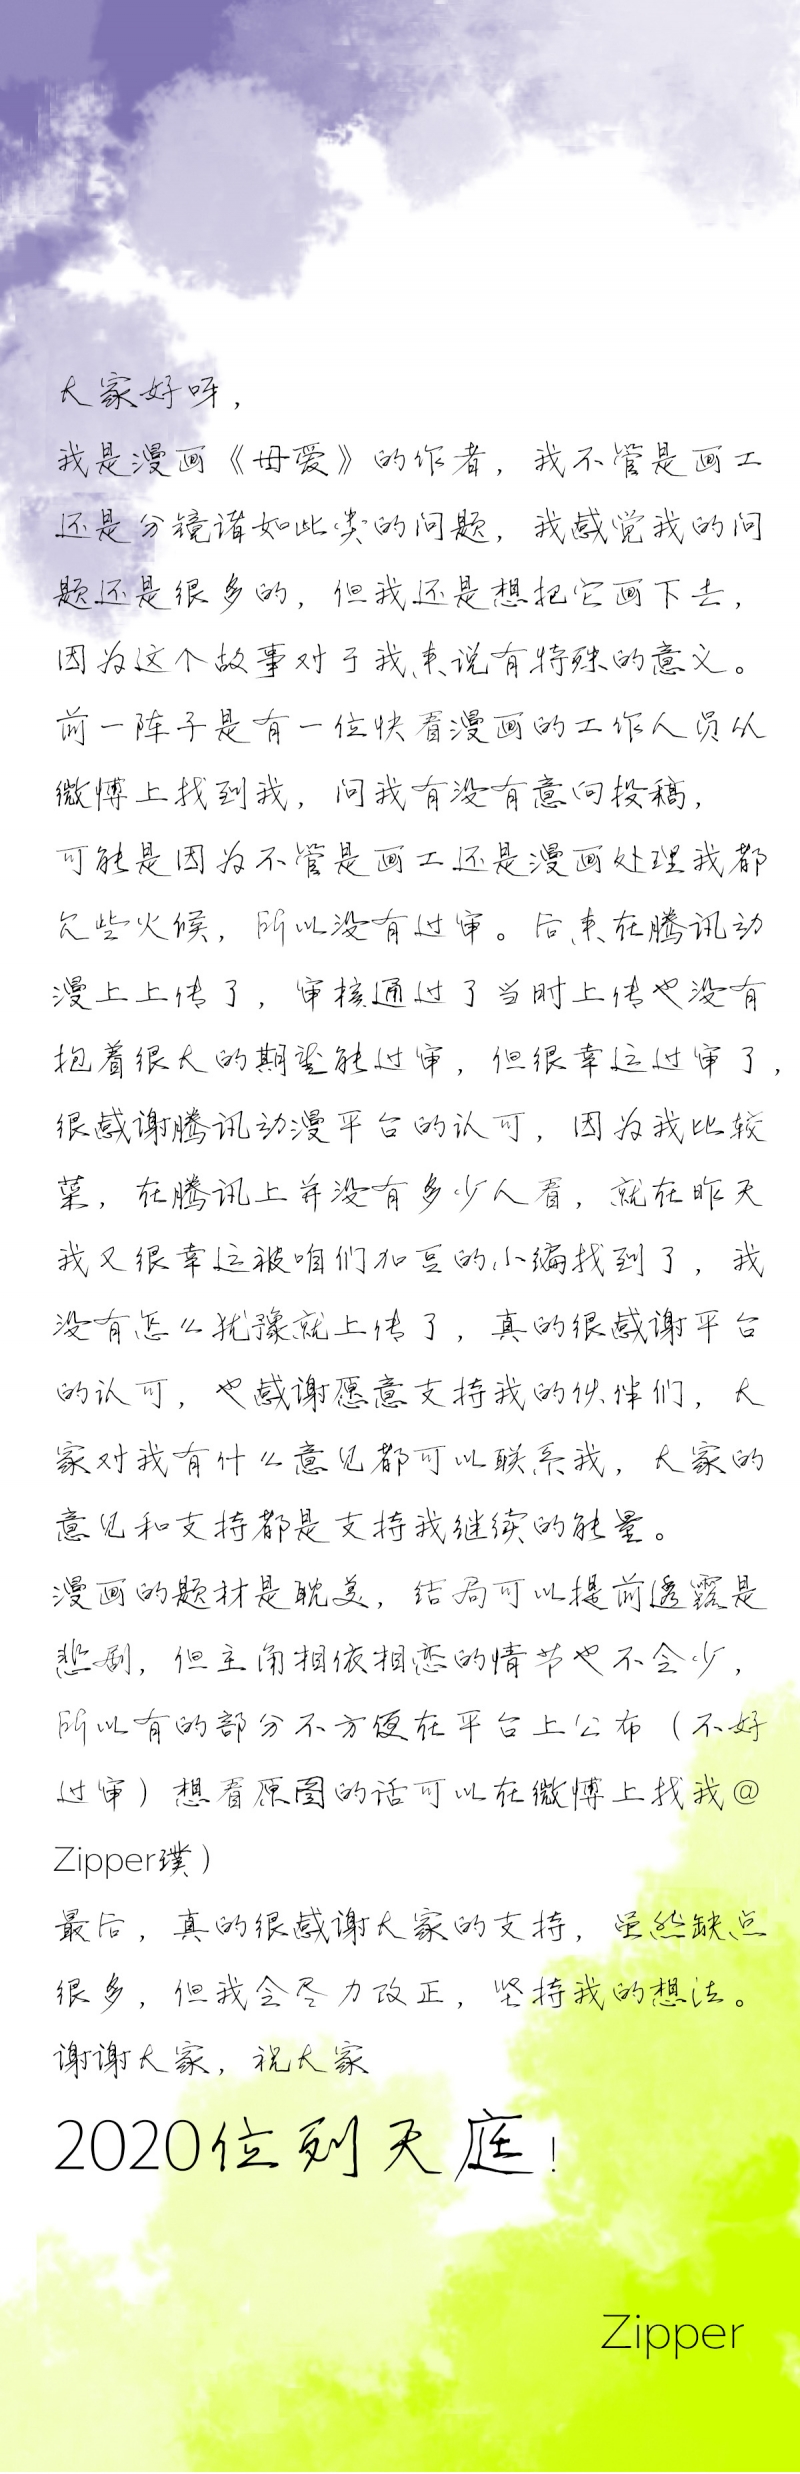 大家好呀，
我是漫画《母爱》的作者，我不管是画工
还是分镜诸如此类的问题，我感觉我的问
题还是很多的，但我还是想把它画下去，
因为这个故事对于我来说有特殊的意义。
前一阵子是有一位快看漫画的工作人员从
微博上找到我，问我有没有意向投稿，
可能是因为不管是画工还是漫画处理我都
欠些火候，所以没有过审。后来在腾讯动
漫上上传了，审核通过了当时上传也没有
抱着很大的期望能过审，但很幸运过审了，
很感谢腾讯动漫平台的认可，因为我比较
菜，在腾讯上并没有多少人看，就在昨天
我又很幸运被咱们加豆的小编找到了，我
没有怎么犹豫就上传了，真的很感谢平台
的认可，也感谢愿意支持我的伙伴们，大
家对我有什么意见都可以联系我，大家的
意见和支持都是支持我继续的能量。
漫画的题材是耽美，结局可以提前透露是
悲剧，但主角相依相恋的情节也不会少，
所以有的部分不方便在平台上公布（不好
过审）想看原图的话可以在微博上找我@
Zipper璞）
最后，真的很感谢大家的支持，虽然缺点
很多，但我会尽力改正，坚持我的想法。
谢谢大家，祝大家
2020位列天庭！
Zipper